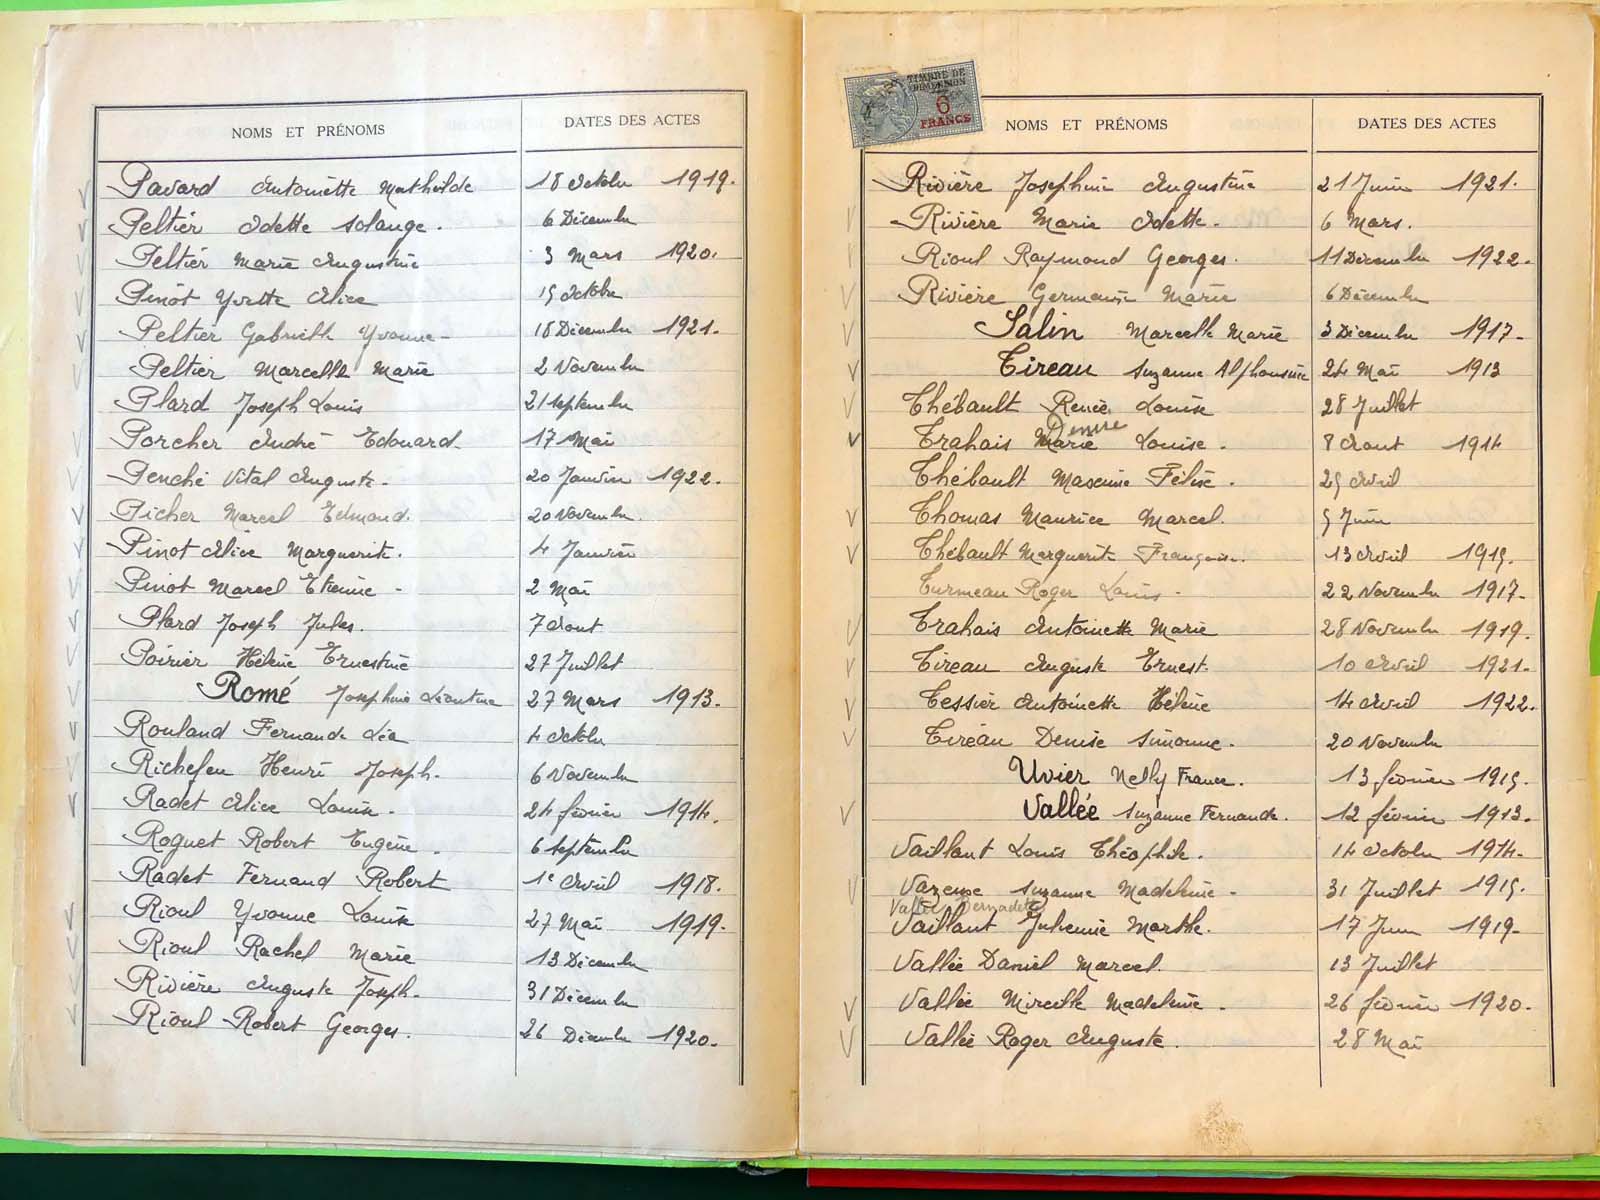 NOMS ET PRÉNOMS DATES DES ACTES
Pavard Antoinette Mathilde 18 Octobre 1919.
Peltier Odette Solange. 6 Décembre
Peltier Marie Augustine 3 Mars 1920.
Pinot Yvette Alice 15 Octobre
Peltier Gabrielle Yvonne 18 Décembre 1921.
Peltier Marcelle Marie 2 Novembre
Plard Joseph Louis 21 Septembre
Porcher André Edouard 17 Mai
Penché Vital Auguste. 20 Janvier 1922.
Picher Marcel Edmond. 20 Novembre.
Pinot Alice Marguerite. 4 Janvier
Pinot Marcel Etienne - 2 Mai
Plard Joseph Jules. 7 Aout
Poirier Hélène Ernestine 27 Juillet
Romé Josephine Léontine 27 Mars 1913.
Rouland Fernande Léa 4 Octobre
Richefeu Henri Joseph. 6 Novembre
Radet Alice Louise. 24 février 1914.
Roguet Robert Eugène. 6 Septembre
Radet Fernand Robert 1e Avril 1918.
Rioul Yvonne Louise 27 Mai 1919.
Rioul Rachel Marie 13 Décembre
Rivière Auguste Joseph. 31 Décembre
Rioul Robert Georges. 26 Décembre 1920.
TIMBRE DE
DIMENSION
6
FRANCS
NOMS ET PRÉNOMS DATES DES ACTES
Rivière Josephine Augustine 21 Juin 1921.
Rivière Marie Odette. 6 Mars.
Rioul Raymond Georges. 11 Décembre 1922.
Rivière Germaine Marie 6 Décembre
Salin Marcelle Marie 3 Décembre 1917.
Tireau Suzanne Alphonsine 24 Mai 1913
Thébault Renée Louise 28 Juillet
Denise
Trahais Marie Louise. 8 Aout 1914
Thébault Maxime Félix. 25 Avril
Thomas Maurice Marcel. 5 Juin
Thébault Marguerite Françoise. 13 Avril 1915.
Turmeau Roger Louis - 22 Novembre 1917.
Trahais Antoinette Marie 28 Novembre 1919.
Tireau Auguste Ernest. 10 Avril 1921.
Tessier Antoinette Hélène 14 Avril 1922.
Tireau Denise Simonne. 20 Novembre
Uvier Nelly France. 13 février 1915.
Vallée Suzanne Fernande. 12 février 1913.
Vaillant Louis Théophile. 14 Octobre 1914.
Suzanne Madeleine - 31 Juillet 1915.
Vallée Bernadette
Vaillant Julienne Marthe. 17 Juin 1919.
Vallée Daniel Marcel. 13 Juillet
Vallée Mireille Madeleine. 26 février 1920.
Vallée Roger Auguste. 28 Mai